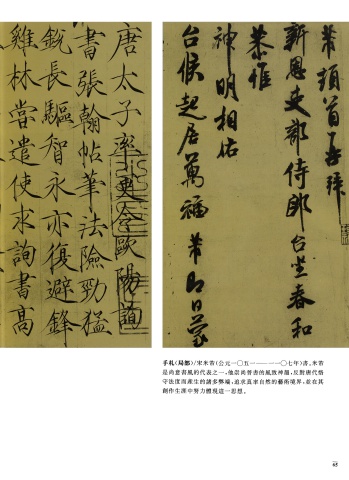 芾頓首再拜
新恩吏部侍郎台坐春和
恭惟
神明相佑
台候起居萬福 芾即日蒙
唐太子率更令歐陽詢
書張翰帖筆法險勁猛
銳長驅智永亦復避鋒
雞林嘗遣使求詢書高
手札(局部)/宋米芾(公元一〇五一——一一〇七年)書。米芾
是尚意書風的代表之一,他崇尚晉書的風致神韻,反對唐代恪
守法度而產生的諸多弊端,追求真率自然的藝術境界,並在其
創作生涯中努力體現這一思想。
65